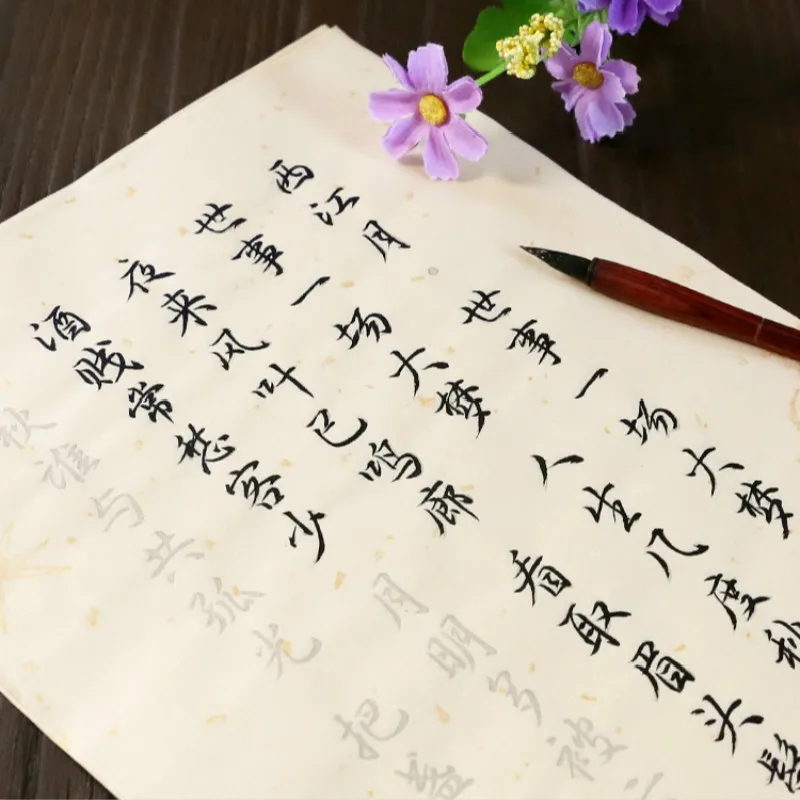 西江月 世事一场大梦
世事一场大梦 人生几度秋
夜来风叶已鸣廊 看取眉头鬓
酒贱常愁客少 月明多被
秋谁与共孤光 把盏